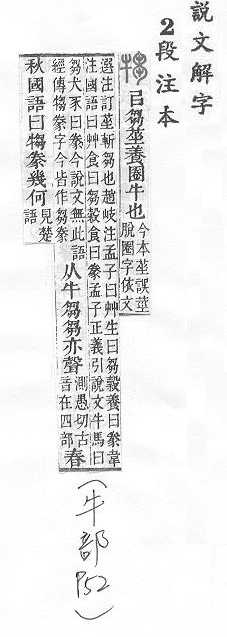 說文解字
2段注本
犓 㠯芻莝養圈牛也 今本莝誤莖
脫圈字依文
選注訂莝斬芻也趙岐注孟子曰艸生曰芻穀養曰豢韋
注國語曰艸食曰芻穀食曰豢孟子正義引說文牛馬曰
芻犬豕曰豢今說文無此語
經傳犓豢字今皆作芻豢
从牛芻芻亦聲 測愚切古
音在四部 春
秋國語曰犓豢幾何 見楚
語
(牛部 P52)